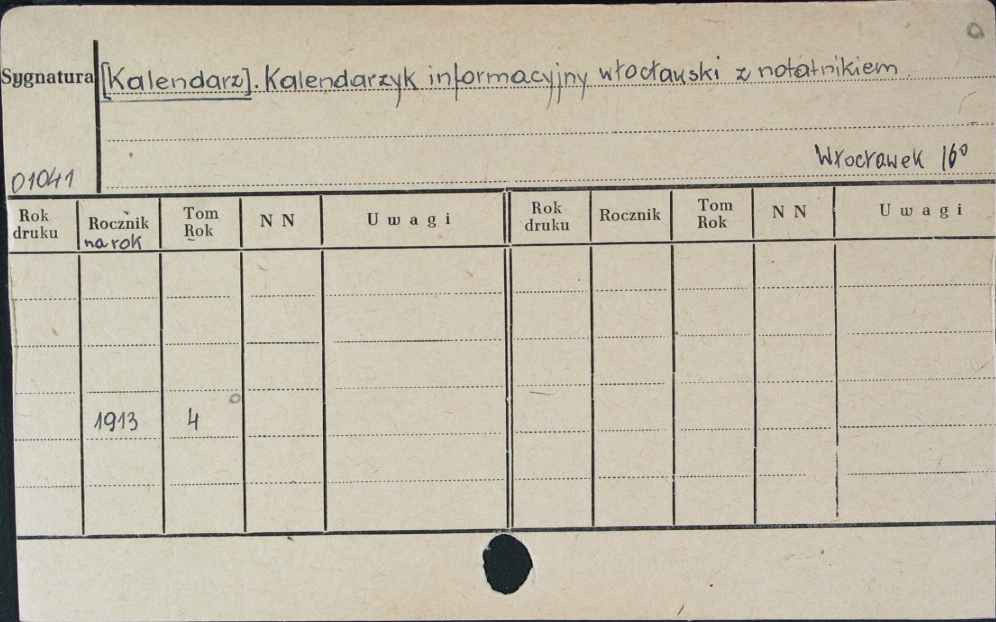 Sygnatura [Kalendarz]. Kalendarzyk informacyjny włocławski z notatnikiem.
Włocławek 16°
01041
Rok druku Rocznik na rok Tom Rok N N Uwagi Rok druku Rocznik Tom Rok N N Uwagi
1913 4